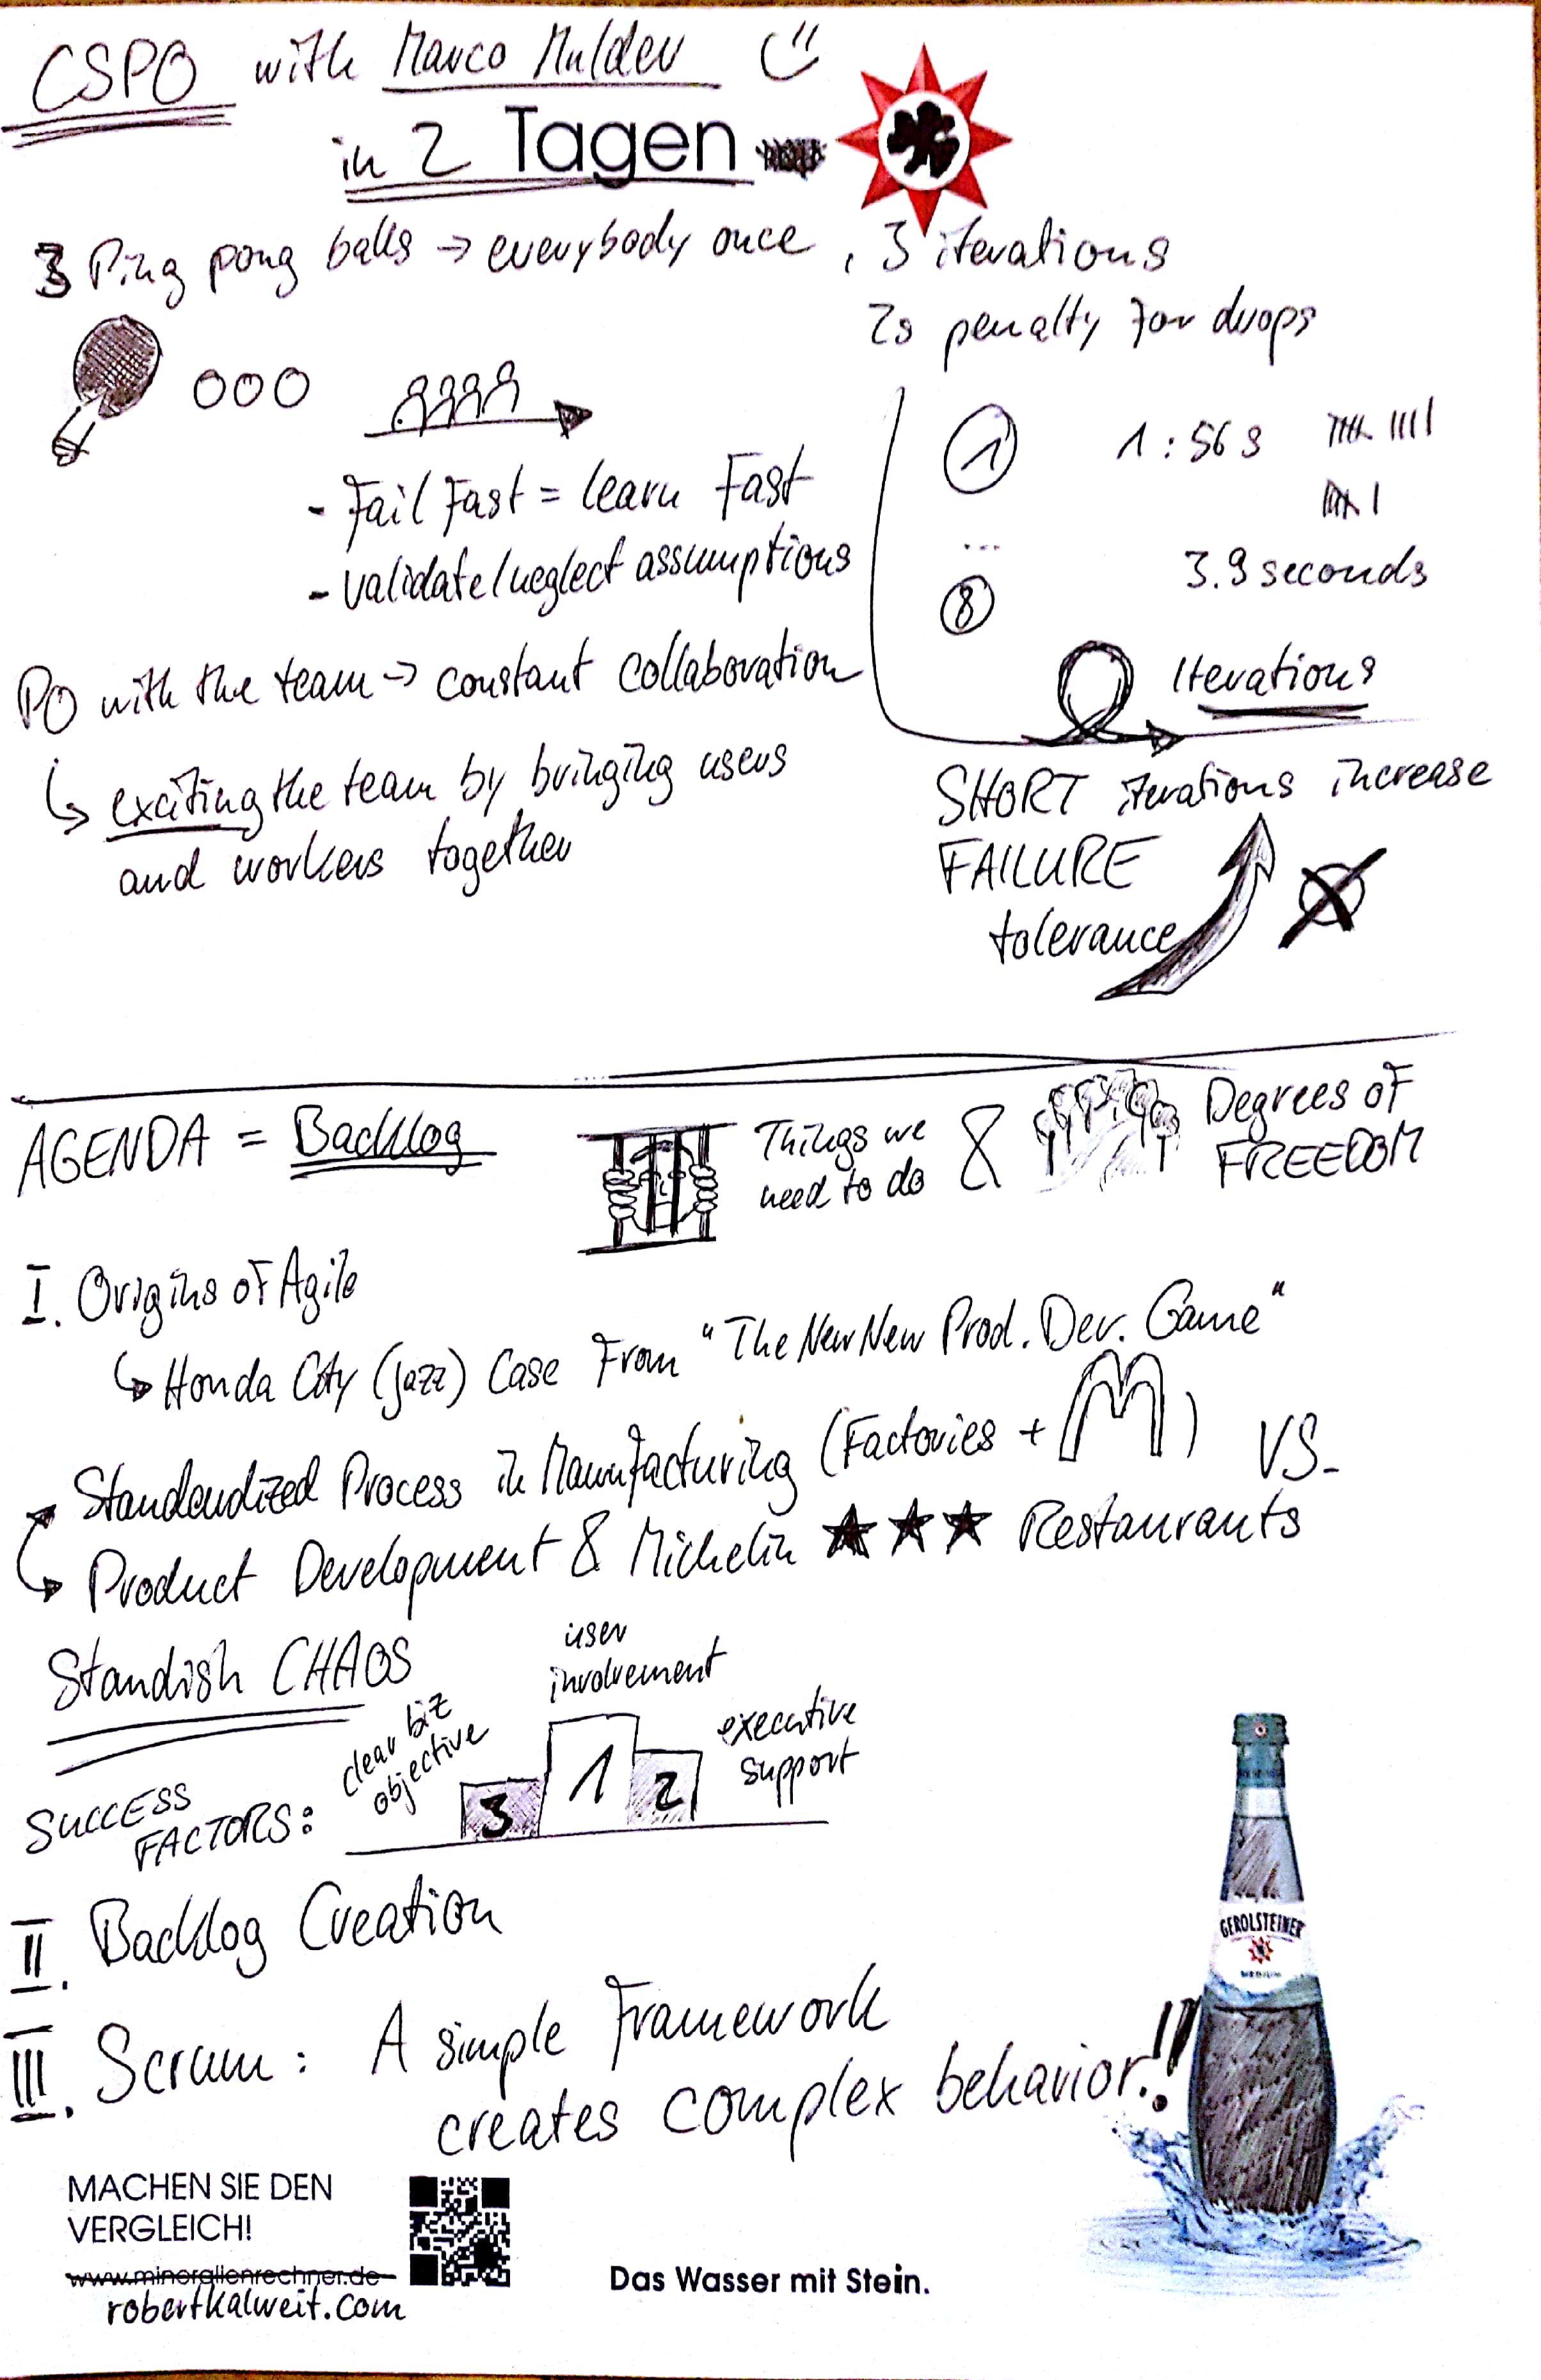 CSPO with Marco Mulder
in 2 Tagen
3 Ping pong balls → everybody once, 3 iterations
2s penalty for drops
1 1:56s
- Fail Fast = learn Fast
- validate/neglect assumptions
...
8 3.9 seconds
PO with the team → constant collaboration
Iterations
↳ exciting the team by bringing users
and workers together
SHORT iterations increase
FAILURE
tolerance
AGENDA = Backlog
Things we
need to do
&
Degrees of
FREEDOM
I. Origins of Agile
↳ Honda City (Jazz) Case From "The New New Prod. Dev. Game"
Standardized Process in Manufacturing (Factories + M) VS.
Product Development & Michelin ★★★ Restaurants
Standish CHAOS
SUCCESS
FACTORS:
clear biz
objective
user
involvement
executive
support
3 1 2
II. Backlog Creation
III. Scrum: A simple Framework
creates complex behavior!!
GEROLSTEINER
MEDIUM
MACHEN SIE DEN
VERGLEICH!
www.mineralienrechner.de
robertkalweit.com
Das Wasser mit Stein.